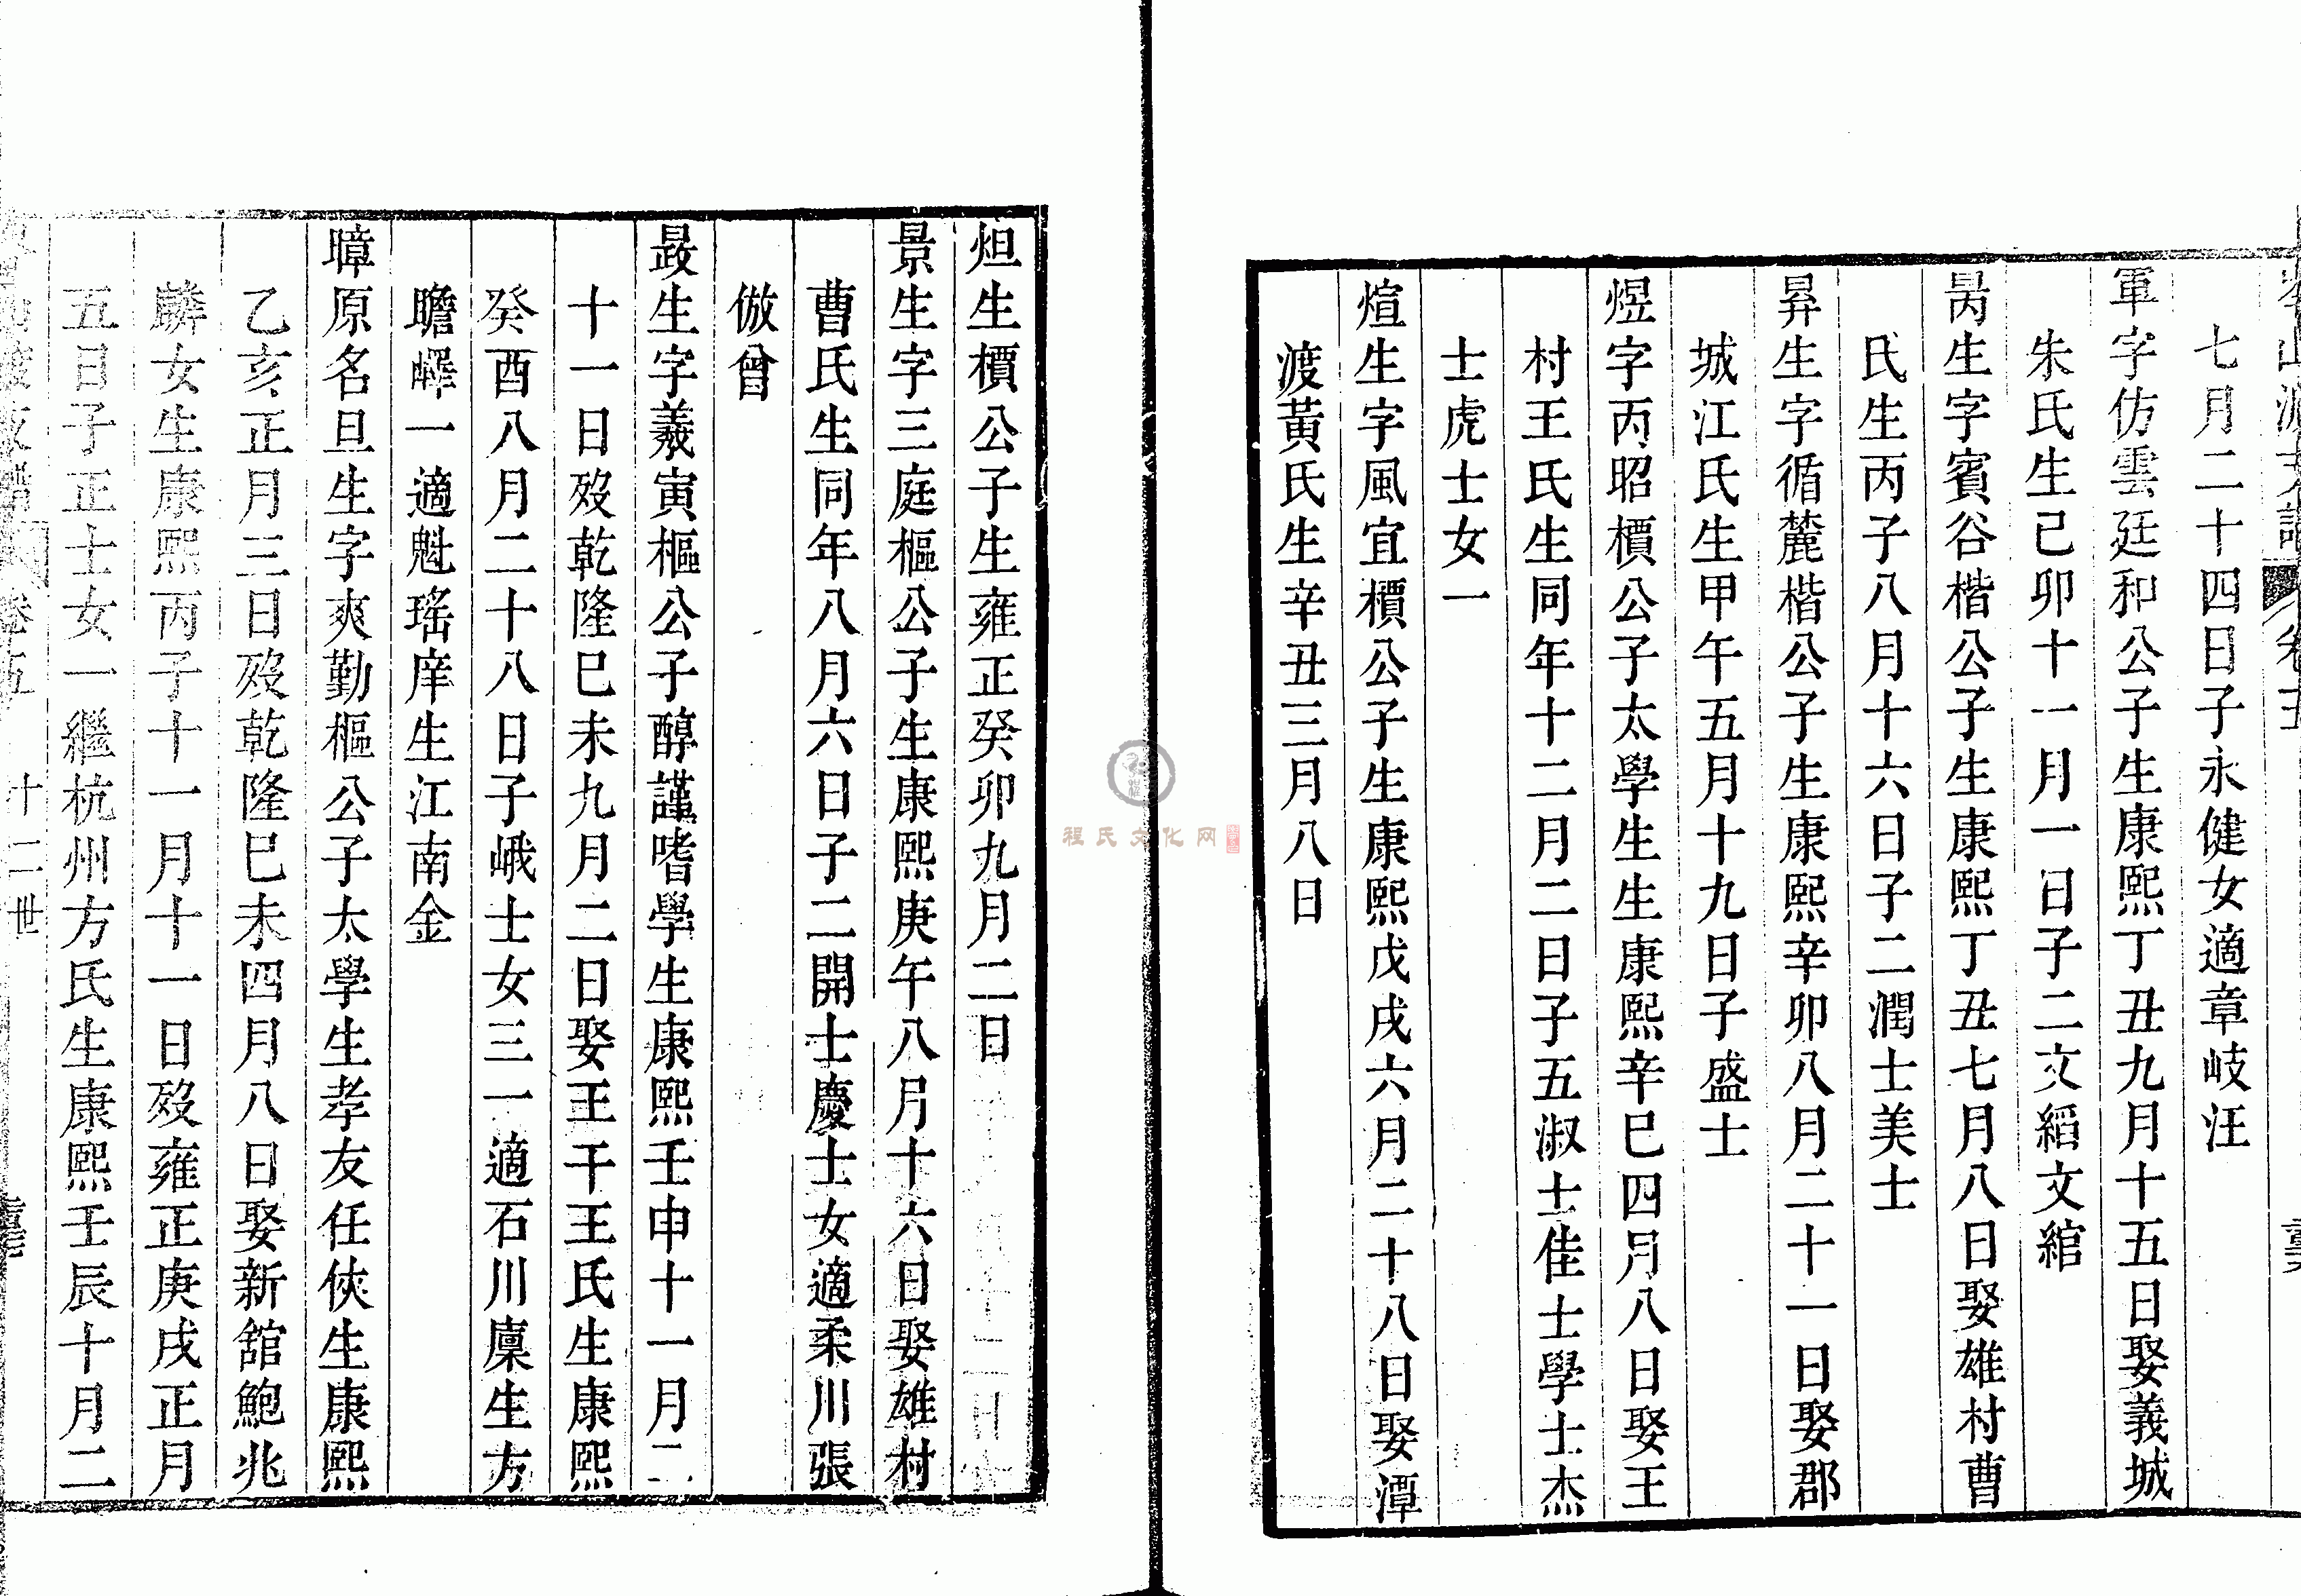 七月二十四日子永健女適章岐汪
軍字仿雲廷和公子生康熙丁丑九月十五日娶義城
朱氏生己卯十一月一日子二文縚文綰
昺生字賓谷楷公子生康熙丁丑七月八日娶雄村曹
氏生丙子八月十六日子二潤士美士
昇生字循麓楷公子生康熙辛卯八月二十一日娶郡
城江氏生甲午五月十九日子盛士
煜字丙昭檟公子太學生生康熙辛巳四月八日娶王
村王氏生同年十二月二日子五淑士佳士學士杰
士虎士女一
煊生字風宜檟公子生康熙戊戌六月二十八日娶潭
渡黃氏生辛丑三月八日
炟生檟公子生雍正癸卯九月二日
景生字三庭樞公子生康熙庚午八月十六日娶雄村
曹氏生同年八月六日子二開士慶士女適柔川張
倣曾
生字羲寅樞公子醇謹嗜學生康熙壬申十一月二
十一日歿乾隆巳未九月二日娶王干王氏生康熙
癸酉八月二十八日子峨士女三一適石川廩生方
瞻嶧一適魁瑤庠生江南金
暲原名旦生字爽勤樞公子太學生孝友任俠生康熙
乙亥正月三日歿乾隆巳未四月八日娶新舘鮑兆
麟女生康熙丙子十一月十一日歿雍正庚戌正月
五日子正士女一繼杭州方氏生康熙壬辰十月二
卷五 十二世
程氏文化网